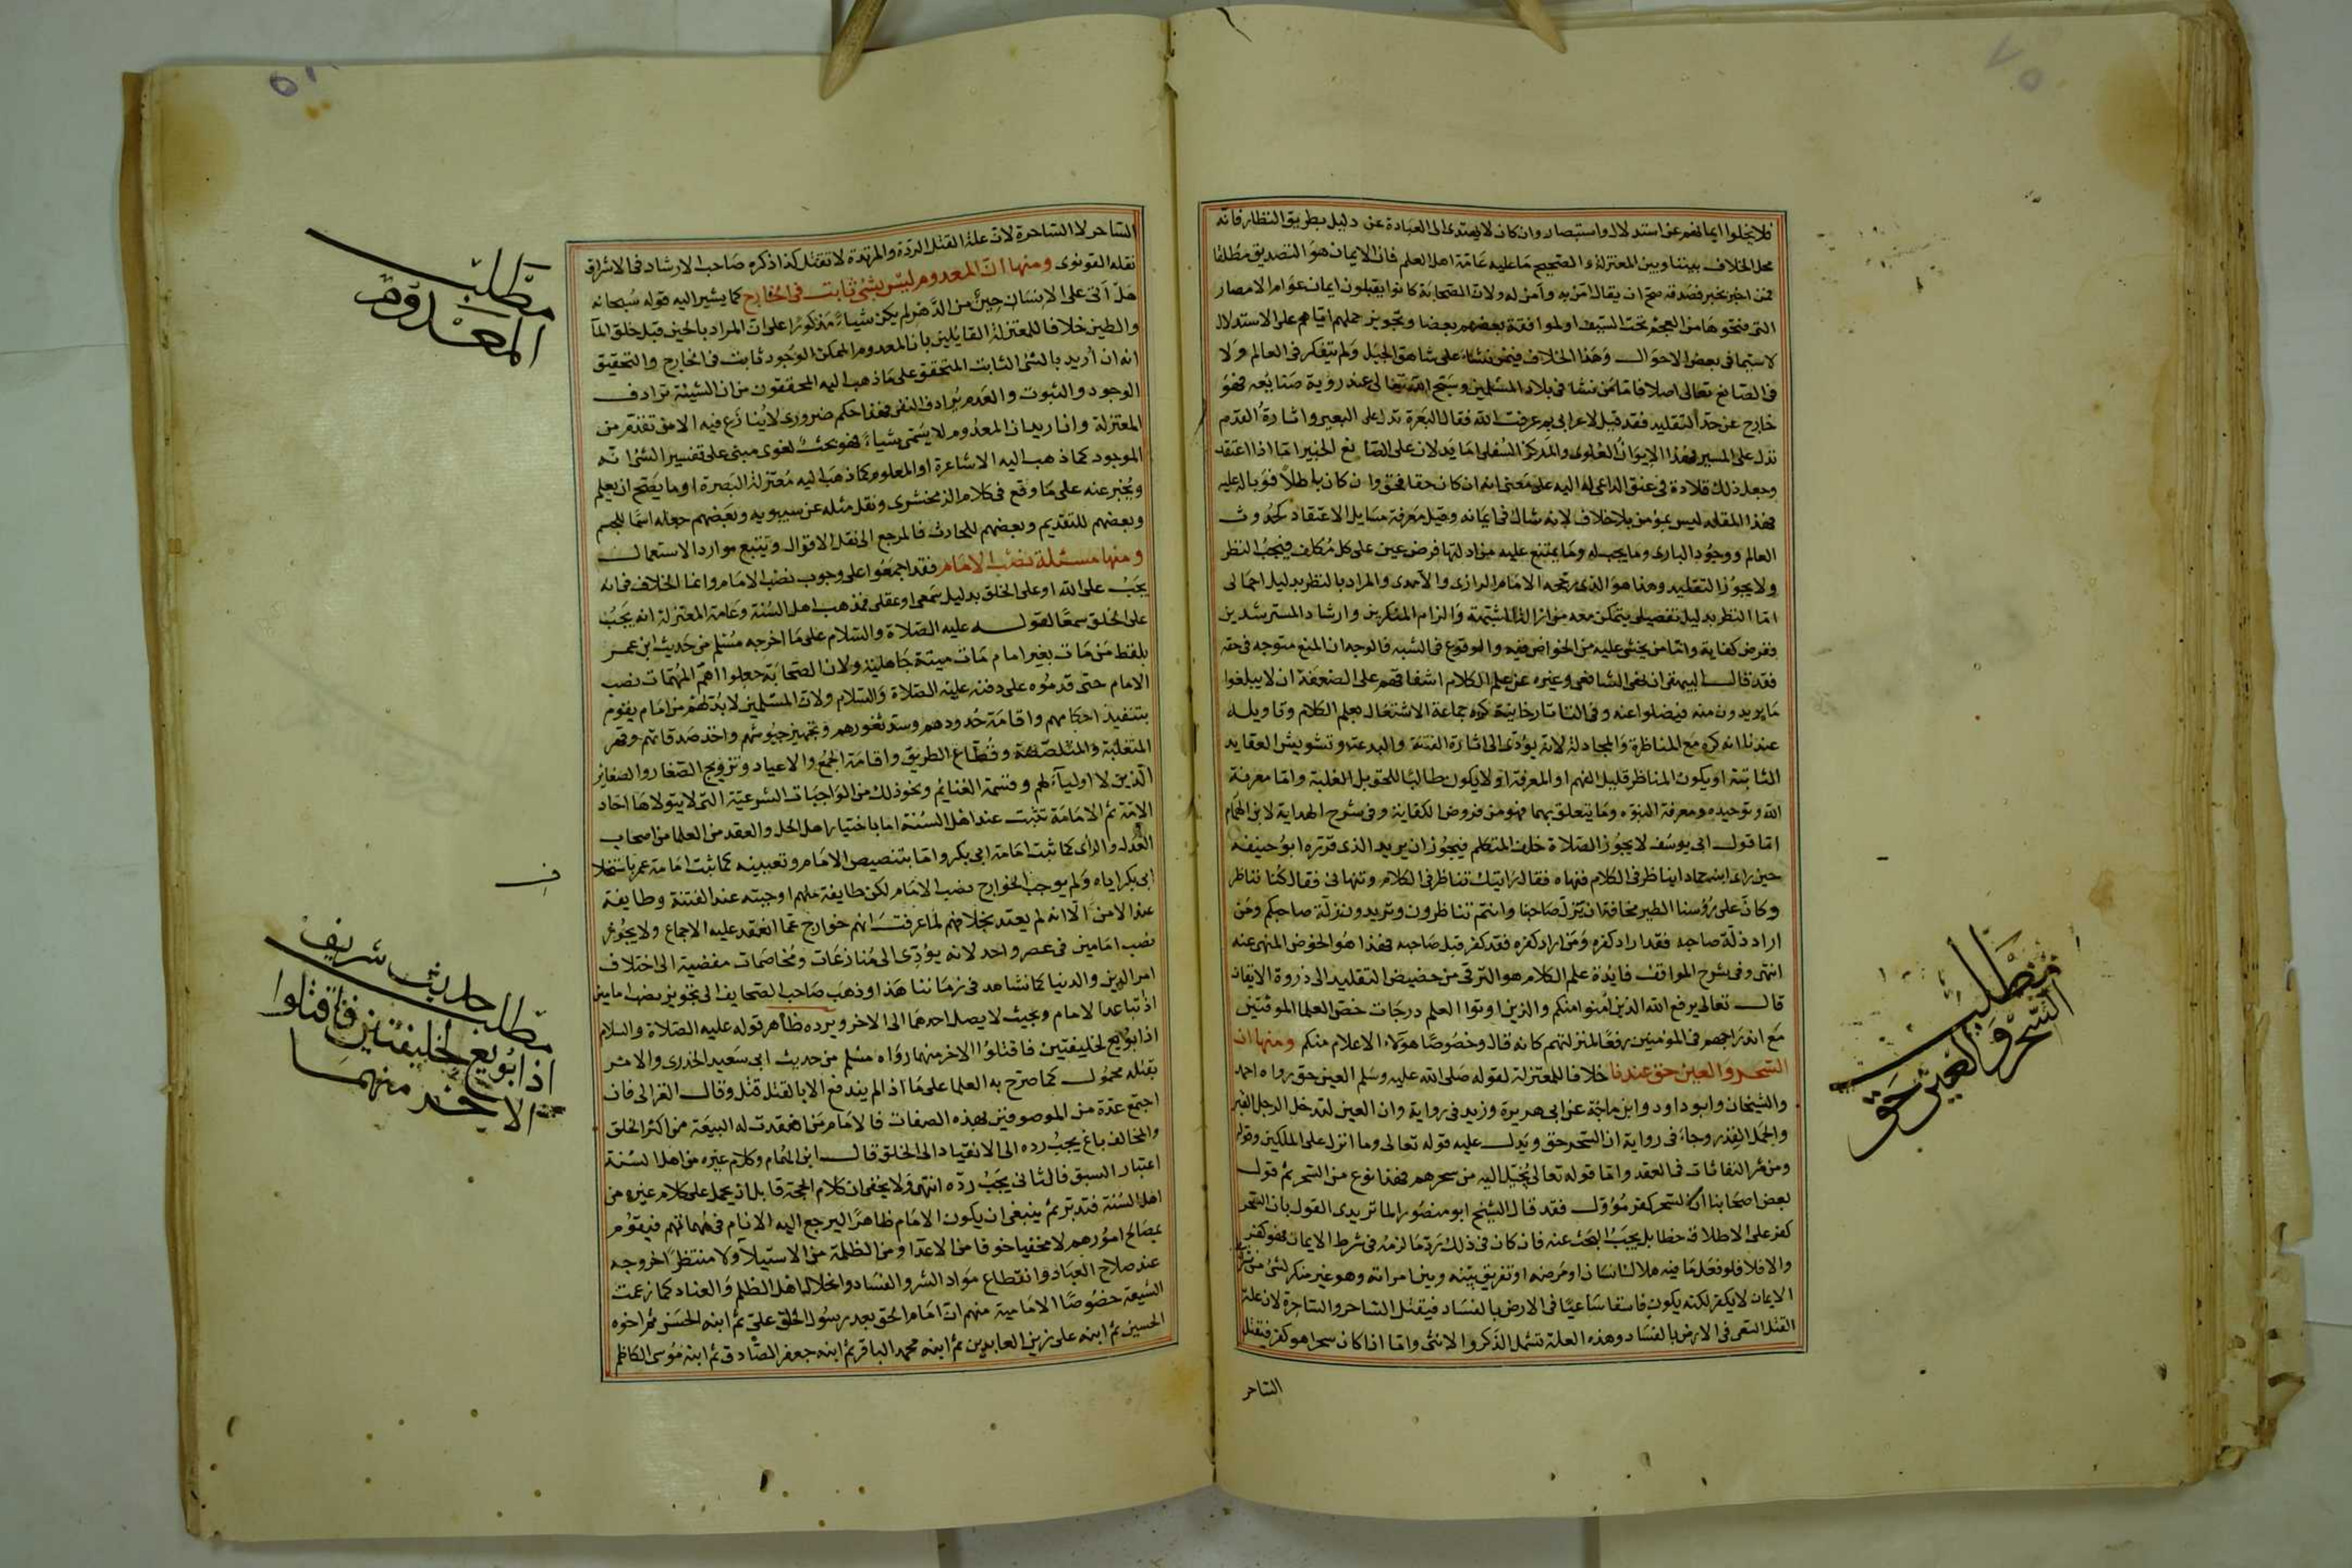 فلا يخلوا ايمانهم عن استدلال واستبصار وان كان لا يهتدى الى العبادة عن دليل بطريق النظار فانه
محل الخلاف بيننا وبين المعتزلة والصحيح ما عليه عامة اهل العلم فان الايمان هو التصديق مطلقا
فمن اخبر بخبر فصدقه صح ان يقال امن به وآمن له ولان الصحابة كانوا يقبلون ايمان عوام الامصار
التى فتحوها من العجم تحت السيف او لموافقة بعضهم بعضا وتجويز حملهم اياهم على الاستدلال
لاسيما فى بعض الاحوال وهذا الخلاف فيمن نشاء على شاهق الجبل ولم يتفكر فى العالم ولا
فى الصانع تعالى اصلا فاما من نشا فى بلاد المسلمين وسبح الله تعالى عند روية صنايعه فهو
خارج عن حد التقليد فقد قيل لاعرابى بم عرفت الله فقال البعرة تدل على البعير واثارة القدم
تدل على المسير فهذا الايوان العلوى والمركز السفلى اما يدلان على الصانع الخبير اما اذا اعتقد
وجعل ذلك قلادة فى عنق الداعى له اليه على معنى انه ان كان حقا فحق وان كان باطلا فوباله عليه
فهذا المقلد ليس بمؤمن بلا خلاف لانه شاك فى ايمانه وقيل معرفة مسايل الاعتقاد كحدوث
العالم ووجود البارى وما يجب له وما يمتنع عليه من ادلتها فرض عين على كل مكلف فيجب النظر
ولا يجوز التقليد وهذا هو الذى رجحه الامام الرازى والآمدى والمراد بالنظر بدليل اجمالى
اما النظر بدليل تفصيلى يتمكن معه من ازالة الشبهة والزام المنكرين وارشاد المسترشدين
ففرض كفاية واما من يخشى عليه من الخواض فيه والوقوع فى الشبه فالوجه ان المنع متوجه فى حقه
فقد قال البيهقى ان نهى الشافعى وغيره عن علم الكلام اشفاقهم على الضعفة ان لا يبلغوا
ما يريدون منه فيضلوا عنه وفى التاتارخانية كره جماعة الاشتغال بعلم الكلام وتاويله
عندنا انه كره مع المناظرة والمجادلة لانه يؤدى الى اثارة الفتنة والبدعة وتشويش العقايد
الثابتة او يكون المناظر قليل الفهم او المعرفة او لا يكون طالبا للحق بل الغلبة واما معرفة
الله وتوحيده ومعرفة النبوه وما يتعلق بهما فهو من فروض الكفاية وفى شرح الهداية لابن الهمام
اما قول ابى يوسف لا يجوز الصلاة خلف المتكلم فيجوز ان يريد الذى قرره ابو حنيفة
حين راى ابنه حماد ايناظر فى الكلام فنهاه فقال رايتك تناظر فى الكلام وتنهانى فقال كنا نناظر
وكان على رؤسنا الطير مخافة ان يزل صاحبنا وانتم تناظرون وتريدون زلة صاحبكم ومن
اراد زلة صاحبه فقد اراد كفره ومن اراد كفره فقد كفر قبل صاحبه فهذا هو الخوض المنهى عنه
انتهى وفى شرح المواقف فايدة علم الكلام هو الترقى من حضيض التقليد الى ذروة الايقان
قال تعالى يرفع الله الذين امنوا منكم والذين اوتوا العلم درجات خص العلما الموقنين
مع اندراجهم فى المؤمنين رفعا لمنزلتهم كانه قال وخصوصا هؤلاء الاعلام منكم ومنها ان
السحر والعين حق عندنا خلافا للمعتزلة لقوله صلى الله عليه وسلم العين حق رواه احمد
والشيخان وابو داود وابن ماجة عن ابى هريرة وزيد فى رواية وان العين لتدخل الرجل القبر
والجمل القدر وجاء فى رواية ان السحر حق ويدل عليه قوله تعالى وما انزل على الملكين وقوله
ومن شر النفاثات فى العقد واما قوله تعالى يخيل اليه من سحرهم فهذا نوع من السحر ثم قول
بعض اصحابنا ان السحر كفر مؤول فقد قال الشيخ ابو منصور الماتريدى القول بان السحر
كفر على الاطلاق خطا بل يجب البحث عنه فان كان فى ذلك رد ما لزمه فى شرط الايمان فهو كفر
والا فلا فلو فعل ما فيه هلاك انسان او مرضه او تفريق بينه وبين امراته وهو غير منكر لشئ من
الايمان لا يكفر لكنه يكون فاسقا ساعيا فى الارض بالفساد فيقتل الساحر والساحرة لان علة
القتل السعى فى الارض بالفساد وهذه العلة تشمل الذكر والانثى واما اذا كان سحرا هو كفر فيقتل
الساحر
مطلب
السحر والعين حق
الساحر لا الساحرة لان علة القتل الردة والمرتدة لا تقتل كذا ذكره صاحب الارشاد فى الاشراق
نقله القونوى ومنها ان المعدوم ليس بشئ ثابت فى الخارج كما يشير اليه قوله سبحانه
هل اتى على الانسان حين من الدهر لم يكن شياء مذكورا على ان المراد بالحين قبل خلق الماء
والطين خلافا للمعتزلة القايلين بان المعدوم الممكن الوجود ثابت فى الخارج والتحقيق
انه ان أريد بالشئ الثابت المتحقق على ما ذهب اليه المحققون من ان الشيئة ترادف
الوجود والثبوت والعدم يرادف النفى فهذا حكم ضرورى لا ينازع فيه الا من تقدم من
المعتزلة وان اريد ان المعدوم لا يسمى شياء فهو بحث لغوى مبنى على تفسير الشئ انه
الموجود كما ذهب اليه الاشاعرة او المعلوم كما ذهب اليه معتزلة البصرة او ما يصح ان يعلم
ويخبر عنه على ما وقع فى كلام الزمخشرى ونقل مثله عن سيبويه وبعضهم جعله اسما للجسم
وبعضهم للتقديم وبعضهم للحادث فالمرجع الى نقل الاقوال وتتبع موارد الاستعمال
ومنها مسئلة نصب الامام فقد اجمعوا على وجوب نصب الامام وانما الخلاف فى انه
يجب على الله او على الخلق بدليل سمعى او عقلى فمذهب اهل السنة وعامة المعتزلة انه يجب
على الخلق سمعا لقوله عليه الصلاة والسلام على ما اخرجه مسلم من حديث ابن عمر
بلفظ من مات بغير امام مات ميتة جاهلية ولان الصحابة جعلوا اهم المهمات نصب
الامام حتى قدموه على دفنه عليه الصلاة والسلام ولان المسلمين لا بد لهم من امام يقوم
بتنفيذ احكامهم واقامة حدودهم وسد ثغورهم وتجهيز جيوشهم واخذ صدقاتهم وقهر
المتغلبة والمتلصصة وقطاع الطريق واقامة الجمع والاعياد وتزويج الصغار والصغائر
الذين لا اولياء لهم وقسمة الغنايم ونحو ذلك من الواجبات الشرعية التى لا يتولاها احاد
الامة ثم الامامة تثبت عند اهل السنة اما باختيار اهل الحل والعقد من العلما من اصحاب
العدل والرأى كما ثبت امامة ابى بكر واما بتنصيص الامام وتعيينه كما ثبت امامة عمر باستخلا
ف
ابى بكر اياه ولم يوجب الخوارج نصب الامام لكن طايفة منهم اوجبته عند الفتنة وطايفة
عند الامن الا انه لم يعتد بخلافهم لما عرفت انهم خوارج عما انعقد عليه الاجماع ولا يجوز
نصب امامين فى عصر واحد لانه يؤدى الى منازعات ومخاصمات مفضية الى اختلاف
امر الدين والدنيا كما نشاهد فى زماننا هذا وذهب صاحب الصحايف الى تجويز نصب امامين
اذا تباعد الامام وبحيث لا يصل احدهما الى الاخر ويرده ظاهر قوله عليه الصلاة والسلام
اذا بويع لخليفتين فاقتلوا الاخر منهما رواه مسلم من حديث ابى سعيد الخدرى والامر
بقتله محمول كما صرح به العلما على ما اذا لم يندفع الا بالقتل قتل وقال الغزالى فان
اجتمع عدة من الموصوفين بهذه الصفات فالامام من انعقدت له البيعة من اكثر الخلق
والمخالف باغ يجب رده الى الانقياد الى الخلق قال ابن الهمام وكلام غيره من اهل السنة
اعتبار السبق فالثانى يجب رده انتهى ولا يخفى ان كلام الحجة قابل ان يحمل على كلام غيره من
اهل السنة فتدبر ثم ينبغى ان يكون الامام ظاهرا ليرجع اليه الانام فى مهماتهم فيقوم
بمصالح امورهم لا مخفيا خوفا من الاعدا ومن الظلمة من الاستيلاء ولا منتظرا خروجه
عند صلاح العباد وانقطاع مواد الشر والفساد وانحلال اهل الظلم والعناد كما زعمت
الشيعة خصوصا الامامية منهم ان امام الحق بعد رسول الخلق على ثم ابنه الحسن ثم اخوه
الحسين ثم ابنه على زين العابدين ثم ابنه محمد الباقر ثم ابنه جعفر الصادق ثم ابنه موسى الكاظم
مطلب
المعدوم
حديث شريف
مطلب
اذا بويع لخليفتين فاقتلوا
الاخر منهما